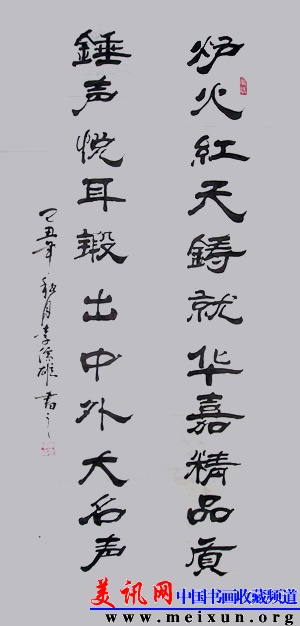 炉火红天铸就华嘉精品质
锤声悦耳锻出中外大名声
己丑年秋月李汉雄书
美讯网 中国书画收藏频道
www.meixun.org